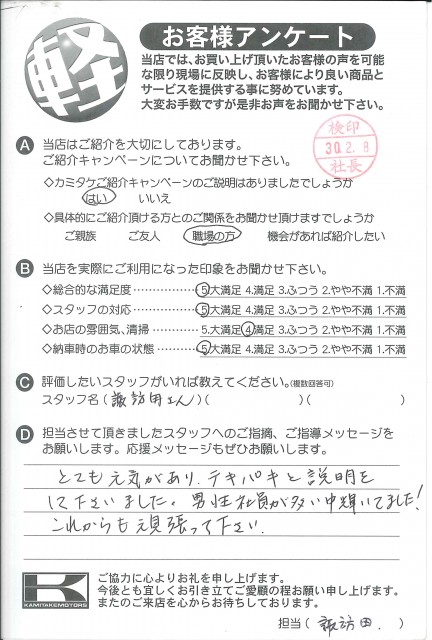 軽
お客様アンケート
当店では、お買い上げ頂いたお客様の声を可能
な限り現場に反映し、お客様により良い商品と
サービスを提供する事に努めています。
大変お手数ですが是非お声をお聞かせ下さい。
検印
30.2.8
社長
A 当店はご紹介を大切にしております。
ご紹介キャンペーンについてお聞かせ下さい。
◇カミタケご紹介キャンペーンのご説明はありましたでしょうか
はい いいえ
◇具体的にご紹介頂ける方とのご関係をお聞かせ頂けますでしょうか
ご親族 ご友人 職場の方 機会があれば紹介したい
B 当店を実際にご利用になった印象をお聞かせ下さい。
◇総合的な満足度……………5.大満足 4.満足 3.ふつう 2.やや不満 1.不満
◇スタッフの対応……………5.大満足 4.満足 3.ふつう 2.やや不満 1.不満
◇お店の雰囲気、清掃………5.大満足 4.満足 3.ふつう 2.やや不満 1.不満
◇納車時のお車の状態………5.大満足 4.満足 3.ふつう 2.やや不満 1.不満
C 評価したいスタッフがいれば教えてください。(複数回答可)
スタッフ名(諏訪田さん)( )( )
D 担当させて頂きましたスタッフへのご指摘、ご指導メッセージを
お願いします。応援メッセージもぜひお願いします。
とても元気があり、テキパキと説明を
して下さいました。男性社員が多い中輝いてました!
これからも頑張って下さい.
K
KAMITAKEMOTORS
ご協力に心よりお礼を申し上げます。
今後とも宜しくお引き立てご愛顧の程お願い申し上げます。
またのご来店を心からお待ちしております。
担当(諏訪田.)